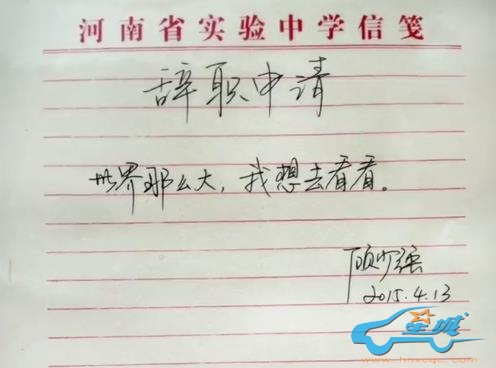 河南省实验中学信笺
辞职申请
世界那么大，我想去看看。
顾少强
2015.4.13
金城
www.hnxcqc.com